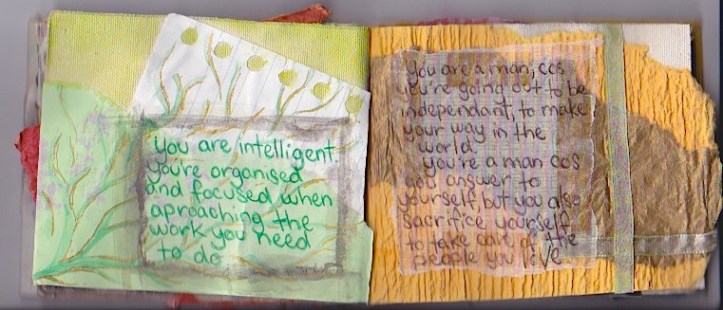 you are intelligent.
you're organised
and focused when
aproaching the
work you need
to do
you are a man, cos
you're going out to be
independant, to make
your way in the
world.
you're a man cos
you answer to
yourself, but you also
sacrifice yourself
to take care of the
people you love